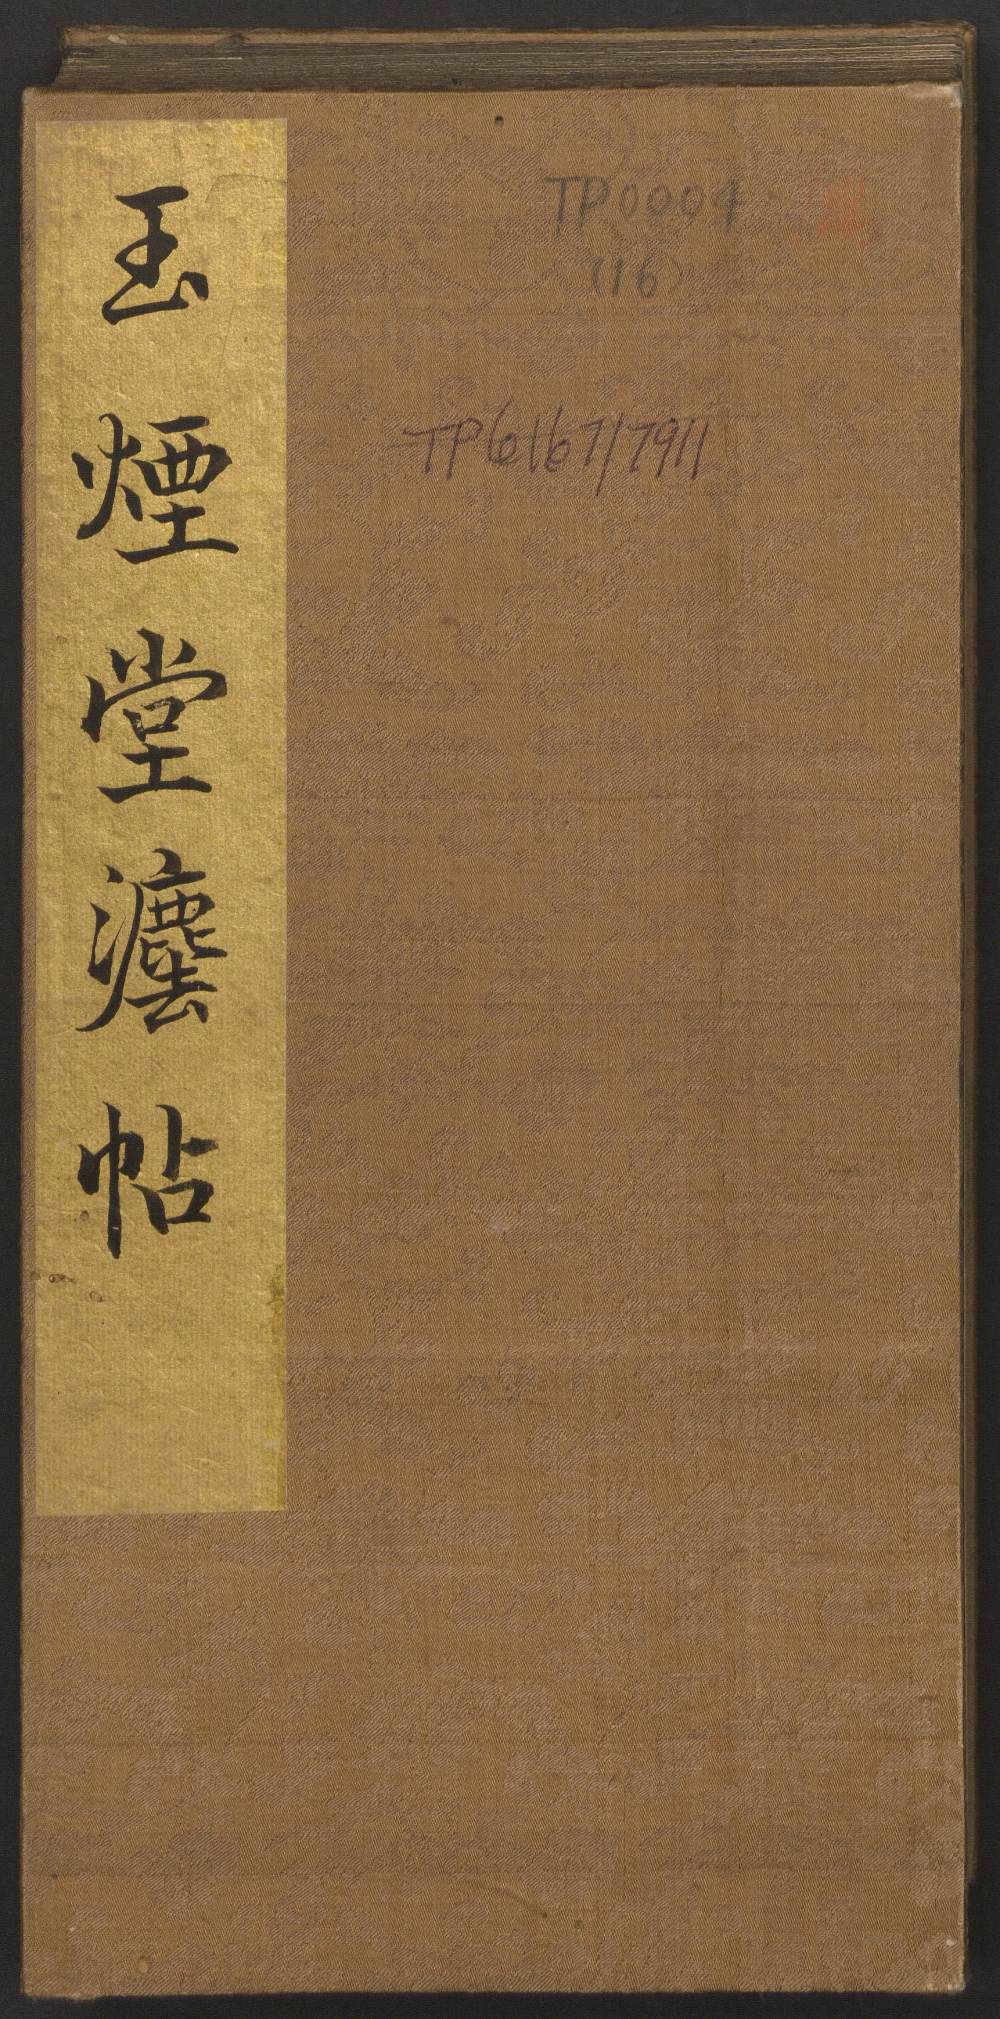 玉煙堂灋帖
TP0004
(16)
TP6167/7911